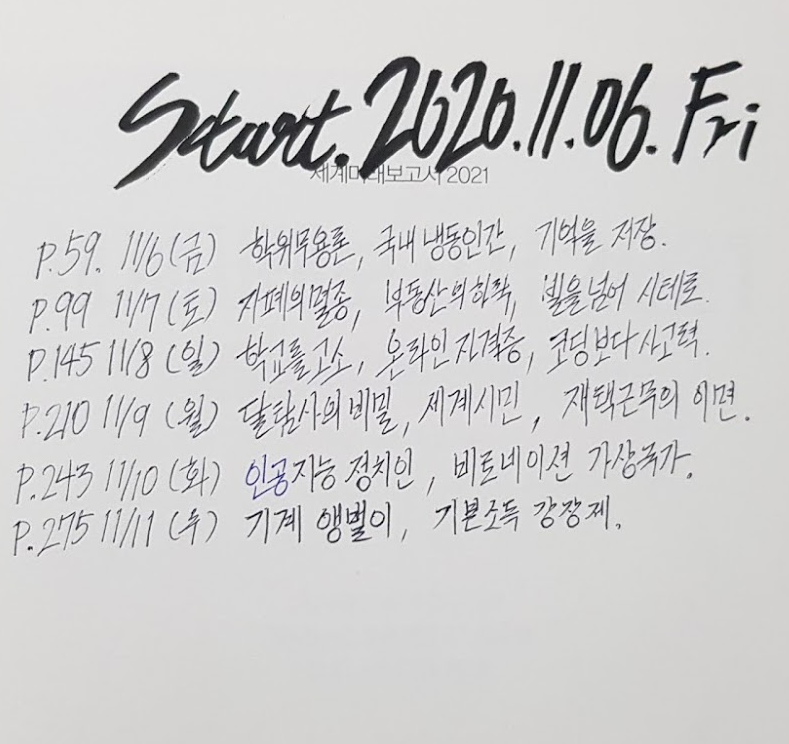 Start. 2020. 11. 06. Fri
세계미래보고서 2021
P.59. 11/6 (금) 학위무용론, 국내 냉동인간, 기억을 저장.
P.99 11/7 (토) 자폐의 멸종, 부동산의 하락, 빌을 넘어 시테로.
P.145 11/8 (일) 학교를 고소, 온라인 자격증, 코딩보다 사고력.
P.210 11/9 (월) 달탐사의 비밀, 세계시민, 재택근무의 이면.
P.243 11/10 (화) 인공지능 정치인, 비트네이션 가상국가.
P.275 11/11 (수) 기계 앵벌이, 기본소득 강장제.